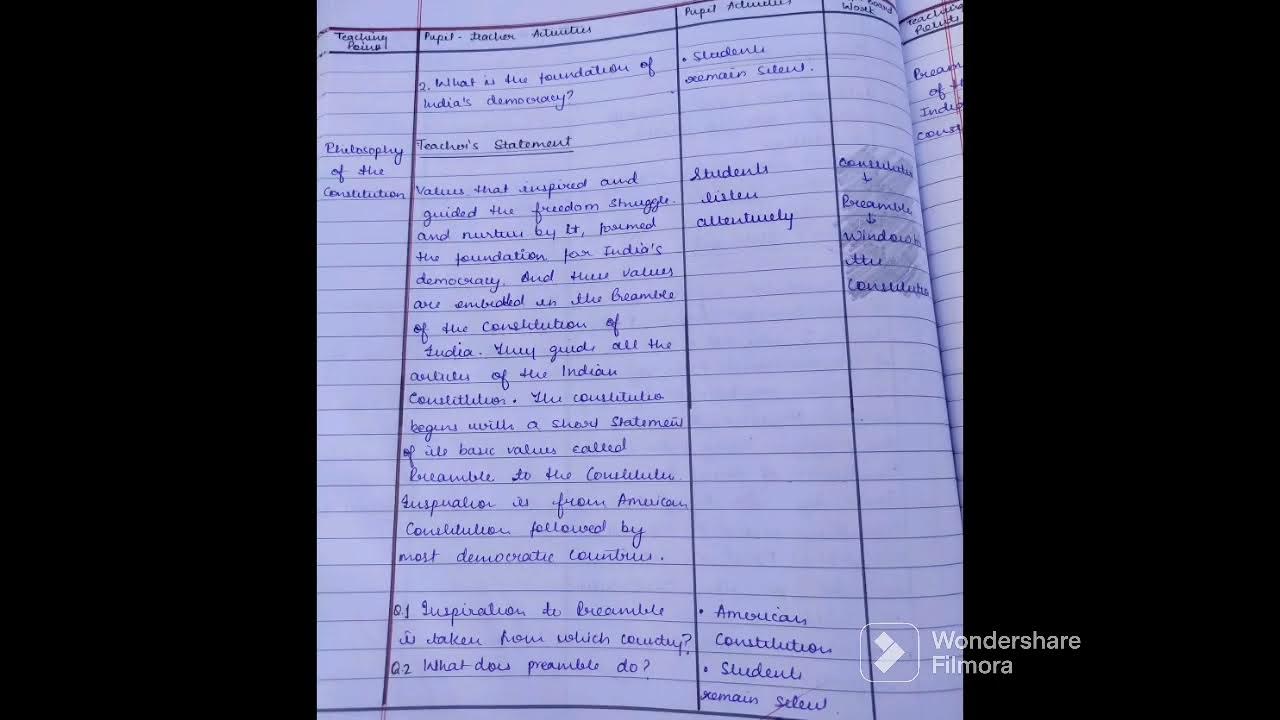 Teaching Point
Pupil - teacher Activities
Pupil Activities
Board Work
2. What is the foundation of
India's democracy?
• Students
remain silent.
Philosophy
of the
Constitution
Teacher's Statement
Values that inspired and
guided the freedom struggle.
and nurture by it, formed
the foundation for India's
democracy. And these values
are embidded in the Preamble
of the Constitution of
India. They guide all the
articles of the Indian
Constitution. The constitution
begins with a short statement
of its basic values called
Preamble to the Constitution.
Inspiration is from American
Constitution followed by
most democratic countries.
Students
listen
attentively
Constitution
↓
Preamble
↓
Window to
the
Constitution
Q.1 Inspiration to Preamble
is taken from which country?
• American
Constitution
Q.2 What does preamble do?
• Students
remain silent.
Teaching
Points
Pream
of th
India
const
Wondershare
Filmora